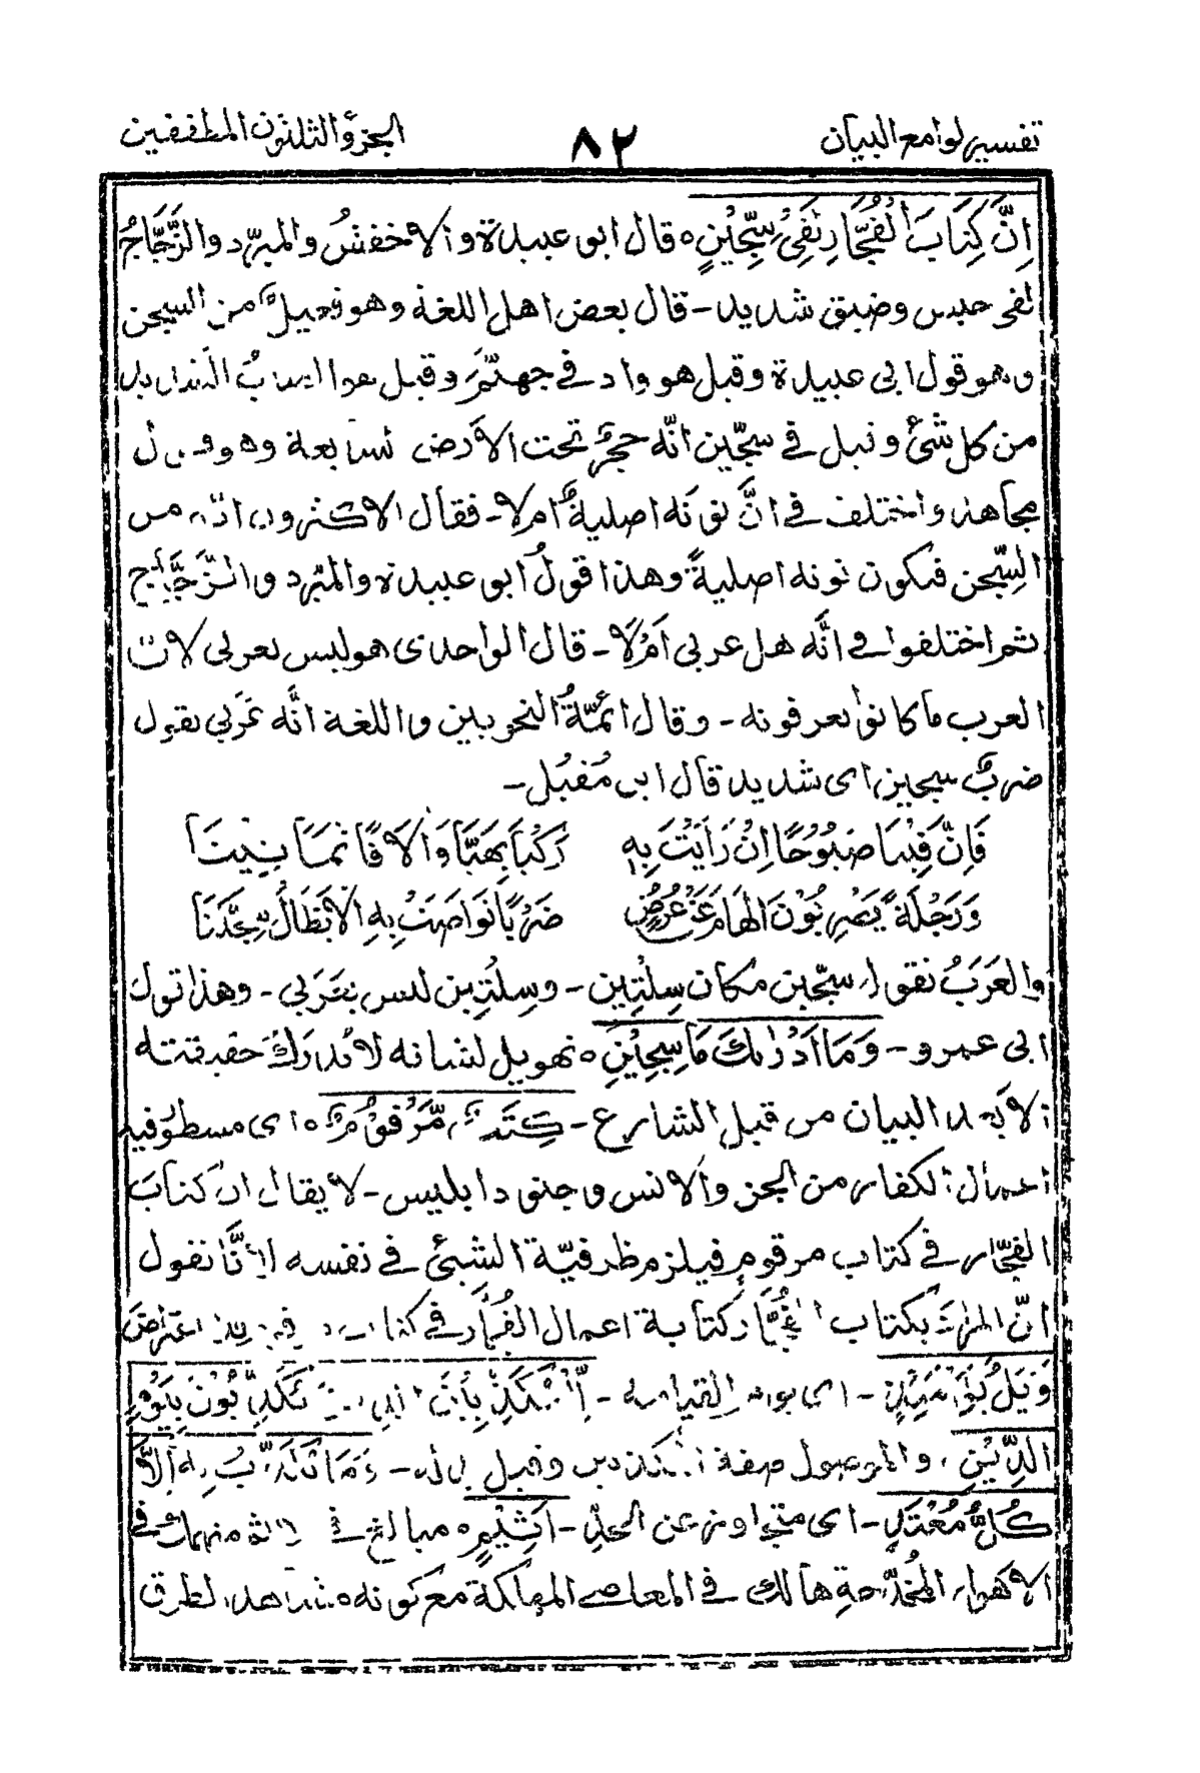 تفسير لوامع البيان ٨٢ الجزؤ الثلثون المطففين
اِنَّ كِتَابَ الْفُجَّارِ لَفِیْ سِجِّيْنٍ ه قال ابو عبيدة والاخفشُ والمبرّد والزَّجَّاجُ
لفى حبس وضيق شديد - قال بعض اهل اللغة وهو فعيلٌ من السجن
وهو قول ابى عبيدة وقيل هو واد فى جهنّمَ وقيل هوا
من كل شئ وقيل فى سجّين انّه حجرٌ تحت الاَرض السابعة وهو قول
مجاهد واختلف فى انَّ نونَه اصليةٌ ام لا - فقال الاكثرون انّه من
السِّجن فيكون نونه اصليةً وهذا قولُ ابو عبيدة والمبّرد والزَّجَّاج
ثم اختلفوا فى انَّه هل عربى اَمْ لَا - قال الواحدى هو ليس بعربى لانّ
العرب ما كانوا يعرفونه - وقال ائمّةُ النحويين واللغة انَّه عَرَبى يقول
ضربٌ سجين اى شديد قال ابى مُقْبُل -
فَاِنّ فِيْنَا صَبُوْحًا اِنْ رَاَيْتَ بِهٖ رَكْبًا بَهِيًّا وَاٰلَافًا ثمَانِيْنَا
وَرَجْلَةً يَّضْرِبُوْنَ الهَامَ عَنْ عُرُضٍ ضَرْبًا تَوَاصَتْ بِهِ الْاَبْطَالُ سِجِّيْنَا
والعَرَبُ تقول سجّين مكان سِلْتِين - وسِلْتِين ليس بعَرَبى - وهذا قول
ابى عمرو - وَمَا اَدْرٰىكَ مَا سِجِّيْنٌ ه تهويل لشانه لا تُدرَكُ حقيقته
الا بعد البيان من قبل الشارع - كِتَابٌ مَّرْقُوْمٌ ه اى مسطوُر فيه
اعمال الكفار من الجن والانس وجنود ابليس - لا يقال انّ كتابَ
الفجّار فى كتاب مرقوم فيلزم ظرفيّة الشیئ فى نفسه لانَّا نقول
انّ المراد بكتاب الفُجَّار كتابة اعمال الفُجّار فى كتاب فيه اعتراض
وَيْلٌ يَّوْمَئِذٍ - اى يوم القيامه - لِّلْمُكَذِّبِيْنَ الَّذِيْنَ يُكَذِّبُوْنَ بِيَوْمِ
الدِّيْنِ ، والموصول صفة المكذبين وقيل بدل - وَمَا يُكَذِّبُ بِهٖ اِلَّا
كُلُّ مُعْتَدٍ - اى متجاوز عن الحدِّ - اَثِيْمٍ ه مبالغ فى منهمك فى
الاهواء المُخدَّجةِ هالك فى المعاصى المهلكة مع كونه لطرق